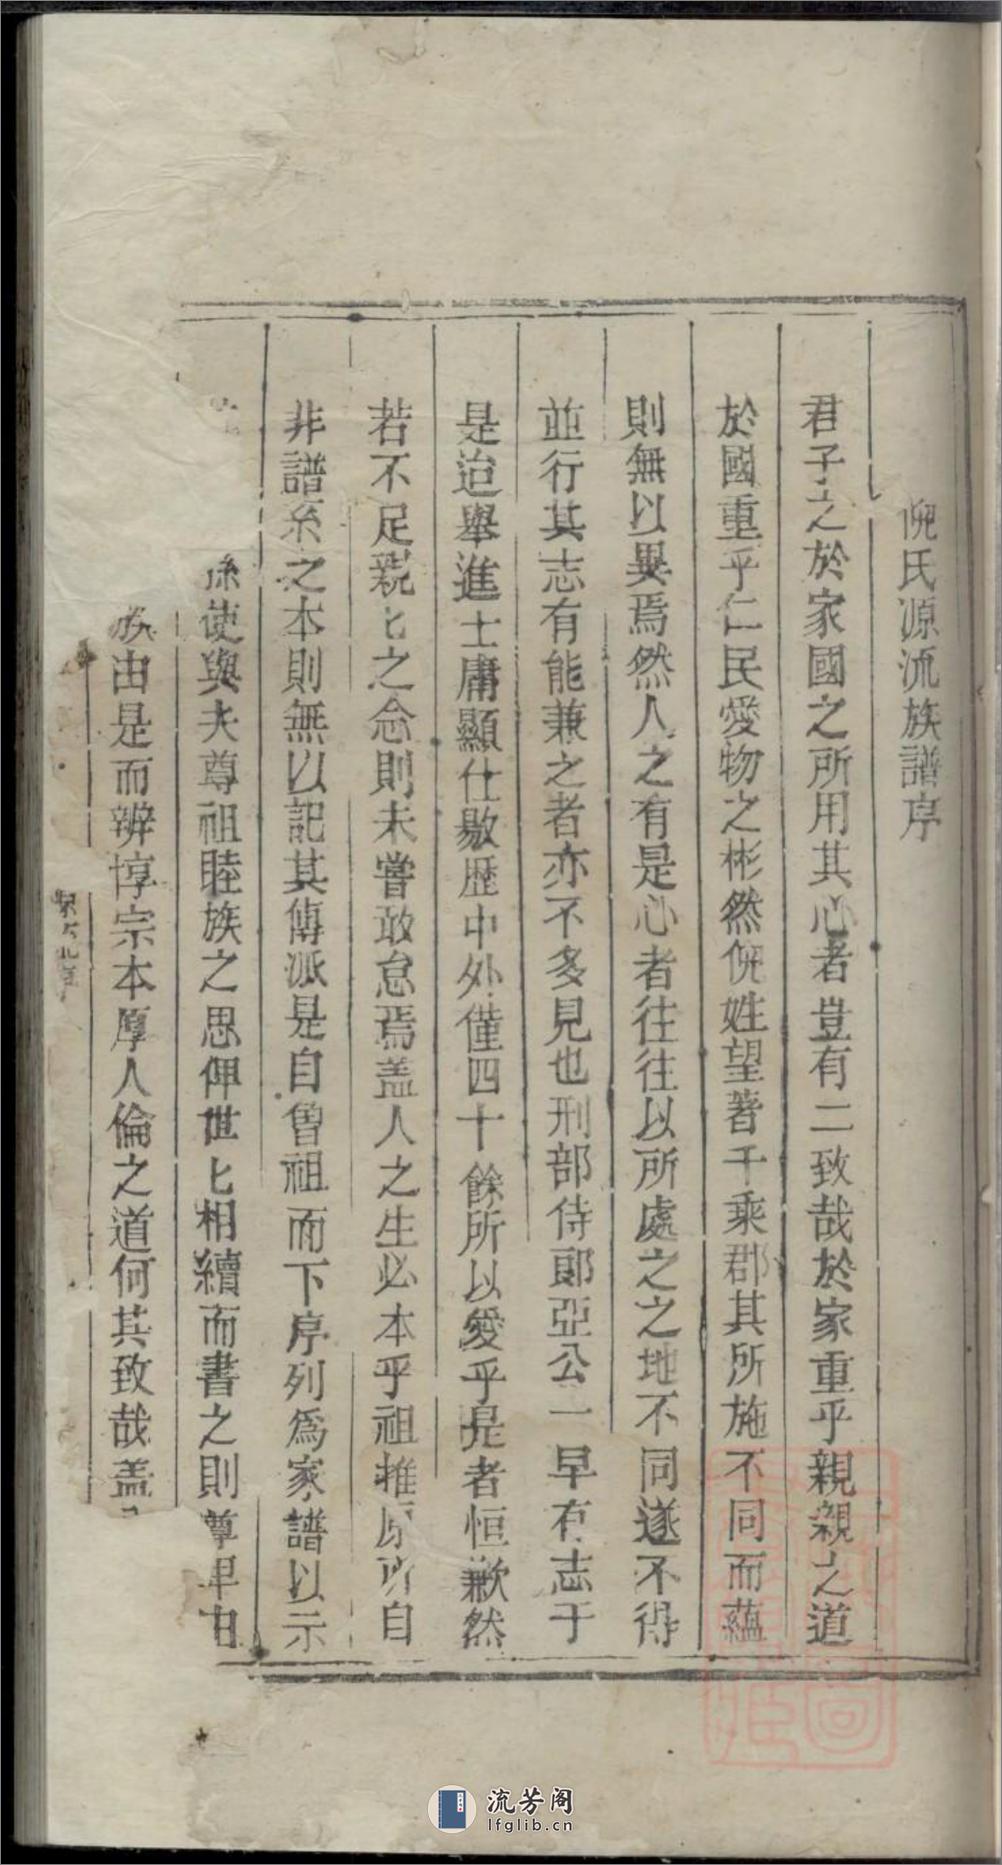 倪氏源流族譜序
君子之於家國之所用其心者豈有二致哉於家重乎親親之道
於國重乎仁民愛物之彬然倪姓望著千乘郡其所施不同而蘊
則無以異焉然人之有是心者往往以所處之之地不同遂不得
並行其志有能兼之者亦不多見也刑部侍郎亞公一早有志于
是迨舉進士庸顯仕敭歷中外僅四十餘所以愛乎是者恒歉然
若不足親匕之念則未嘗敢怠焉盖人之生必本乎祖推原所自
非譜系之本則無以記其傳派是自曾祖而下序列爲家譜以示
孫使與夫尊祖睦族之思俾世匕相續而書之則尊卑由
族由是而辨惇宗本厚人倫之道何其致哉盖
流芳阁
lfglib.cn